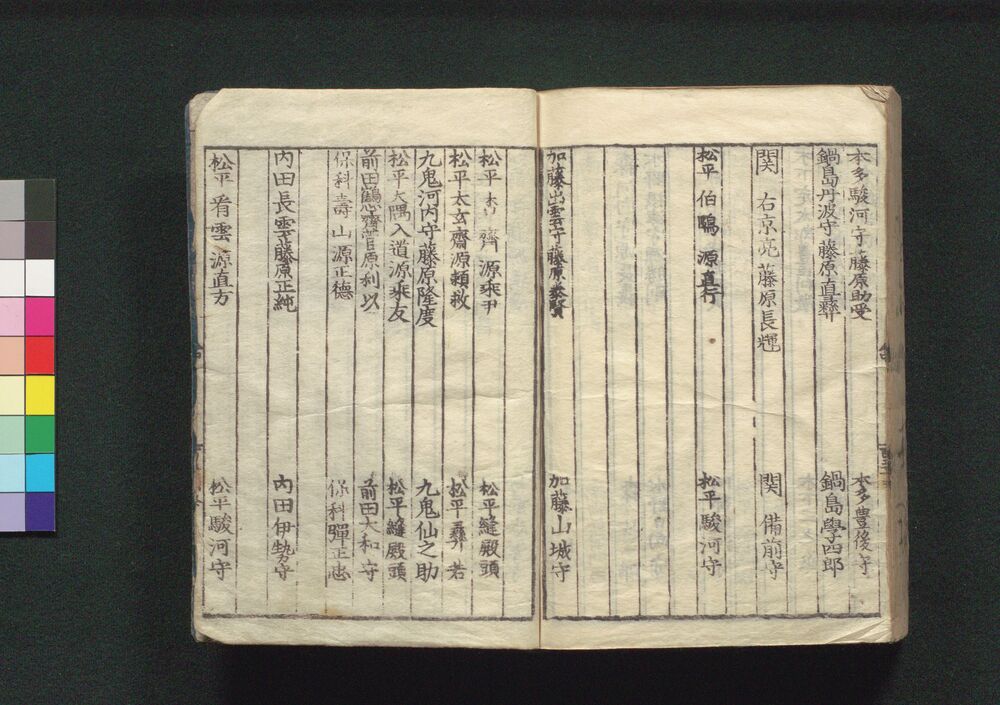 本多駿河守藤原助受
本多豊後守
鍋島丹波守藤原直彝
鍋島學四郎
関 右京亮藤原長
関 備前守
松平伯 源直行
松平駿河守
加藤出雲守藤原泰賢
加藤山城守
松平 齋源乘尹
松平縫殿頭
松平太玄齋源頼救
松平彝若
九鬼河内守藤原隆度
九鬼仙之助
松平大隅入道源乘友
松平縫殿頭
前田 齋菅原利以
前田大和守
保科壽山源正德
保科彈正忠
内田長雲藤原正純
内田伊勢守
松平 雲源直方
松平駿河守